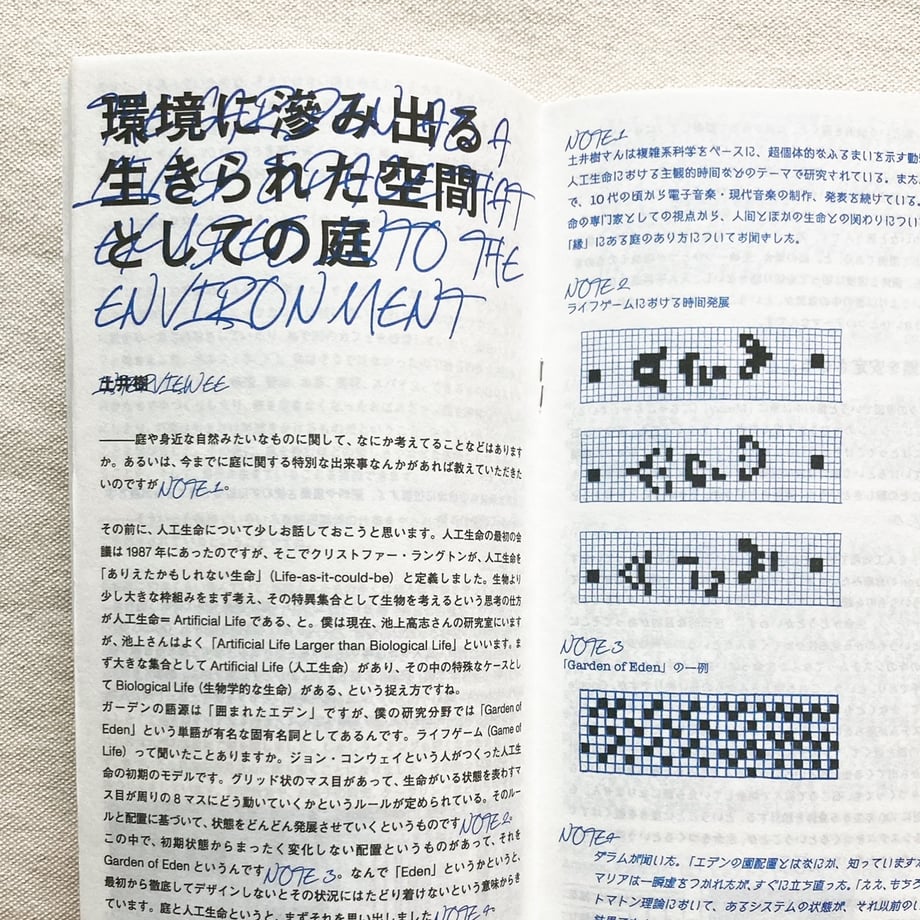 環境に滲み出る
生きられた空間
としての庭
THE GARDEN AS A
LIVED SPACE THAT
EXUDES INTO THE
ENVIRONMENT
土井樹
INTERVIEWEE
───庭や身近な自然みたいなものに関して、なにか考えてることなどはあります
か。あるいは、今までに庭に関する特別な出来事なんかがあれば教えていただきた
いのですがNOTE 1。
その前に、人工生命について少しお話しておこうと思います。人工生命の最初の会
議は1987年にあったのですが、そこでクリストファー・ラングトンが、人工生命を
「ありえたかもしれない生命」(Life-as-it-could-be) と定義しました。生物より
少し大きな枠組みをまず考え、その特異集合として生物を考えるという思考の仕方
が人工生命＝Artificial Lifeである、と。僕は現在、池上高志さんの研究室にいます
が、池上さんはよく「Artificial Life Larger than Biological Life」といいます。ま
ず大きな集合としてArtificial Life（人工生命）があり、その中の特殊なケースとし
てBiological Life（生物学的な生命）がある、という捉え方ですね。
ガーデンの語源は「囲まれたエデン」ですが、僕の研究分野では「Garden of
Eden」という単語が有名な固有名詞としてあるんです。ライフゲーム（Game of
Life）って聞いたことありますか。ジョン・コンウェイという人がつくった人工生
命の初期のモデルです。グリッド状のマス目があって、生命がいる状態を表わすマ
ス目が周りの8マスにどう動いていくかというルールが定められている。そのルー
ルと配置に基づいて、状態をどんどん発展させていくというものですNOTE 2。
この中で、初期状態からまったく変化しない配置というものがあって、それを
Garden of EdenというんですNOTE 3。なんで「Eden」というかというと、
最初から徹底してデザインしないとその状況にはたどり着けないという意味からき
ています。庭と人工生命というと、まずそれを思い出しましたNOTE 4。
NOTE 1
土井樹さんは複雑系科学をベースに、超個体的なふるまいを示す動
人工生命における主観的時間などのテーマで研究されている。また、
で、10代の頃から電子音楽・現代音楽の制作、発表を続けている。
命の専門家としての視点から、人間とほかの生命との関わりについ
「縁」にある庭のあり方についてお聞きした。
NOTE 2
ライフゲームにおける時間発展
NOTE 3
「Garden of Eden」の一例
NOTE 4
ダラムが聞いた。「エデンの園配置とはなにか、知っています
マリアは一瞬虚をつかれたが、すぐに立ち直った。「ええ、もちろ
トマトン理論において、あるシステムの状態が、それ以前の